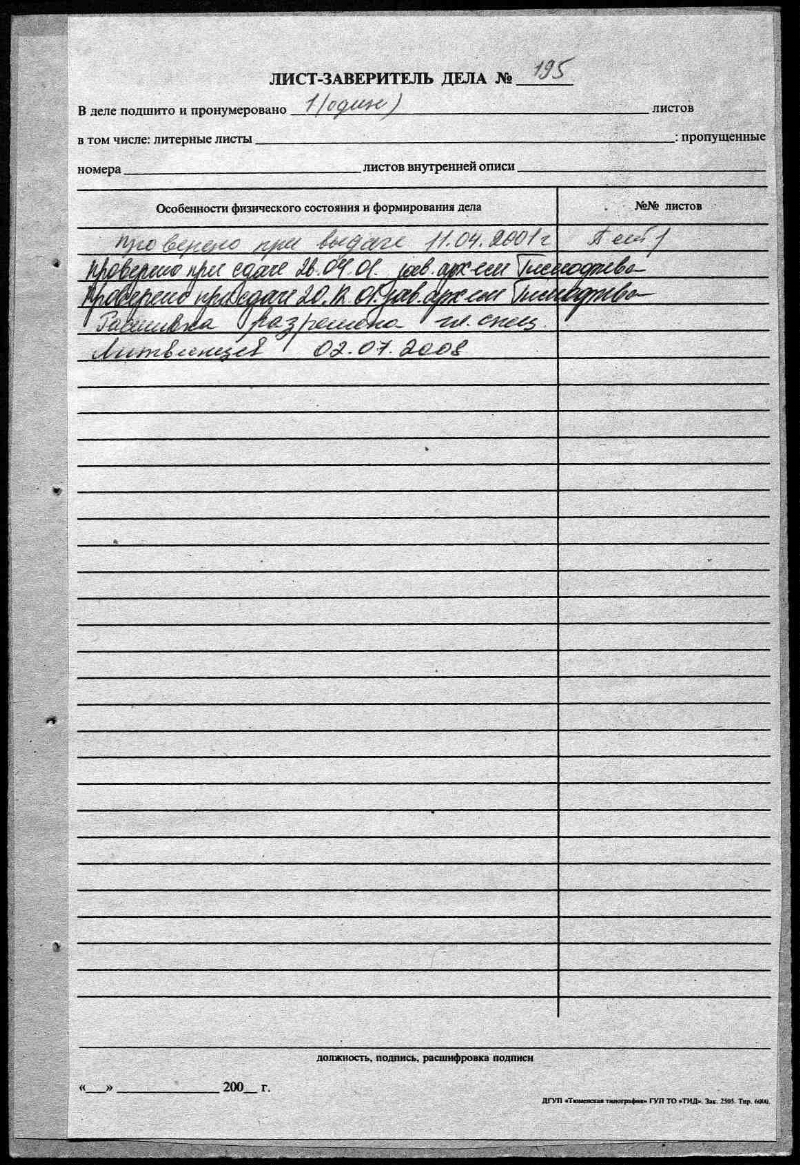 ЛИСТ-ЗАВЕРИТЕЛЬ ДЕЛА № 195
В деле подшито и пронумеровано 1 (один) листов
в том числе: литерные листы : пропущенные
номера листов внутренней описи
Особенности физического состояния и формирования дела №№ листов
проверено при выдаче 11.04.2001г
проверено при сдаче 26.04.01. зав. арх-ем
проверено при сдаче зав. арх-ем
Расшивка разрешена гл. спец.
Литвинцев 02.07.2008
должность, подпись, расшифровка подписи
«__» 200__ г.
ДГУП «Тюменская типография» ГУП ТО «ТИД». Зак. 2505. Тир. 6000.